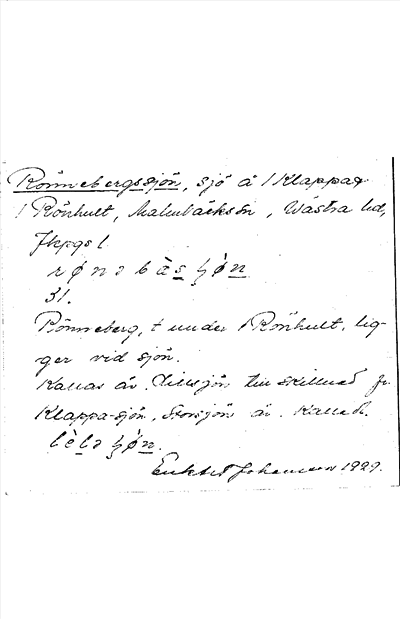 Rönnebergssjön, sjö å 1 Klappa
1 Rönhult, Malmbäcks sn, Västra hd,
Jkpgs l.
rønəbàsʂø̀n
31.
Rönneberg, t under 1 Rönhult, lig-
ger vid sjön.
Kallas äv. Lillsjön till skillnad fr.
Klappa-sjön, Storsjön äv. kallad.
Enkvist Johansson 1929.